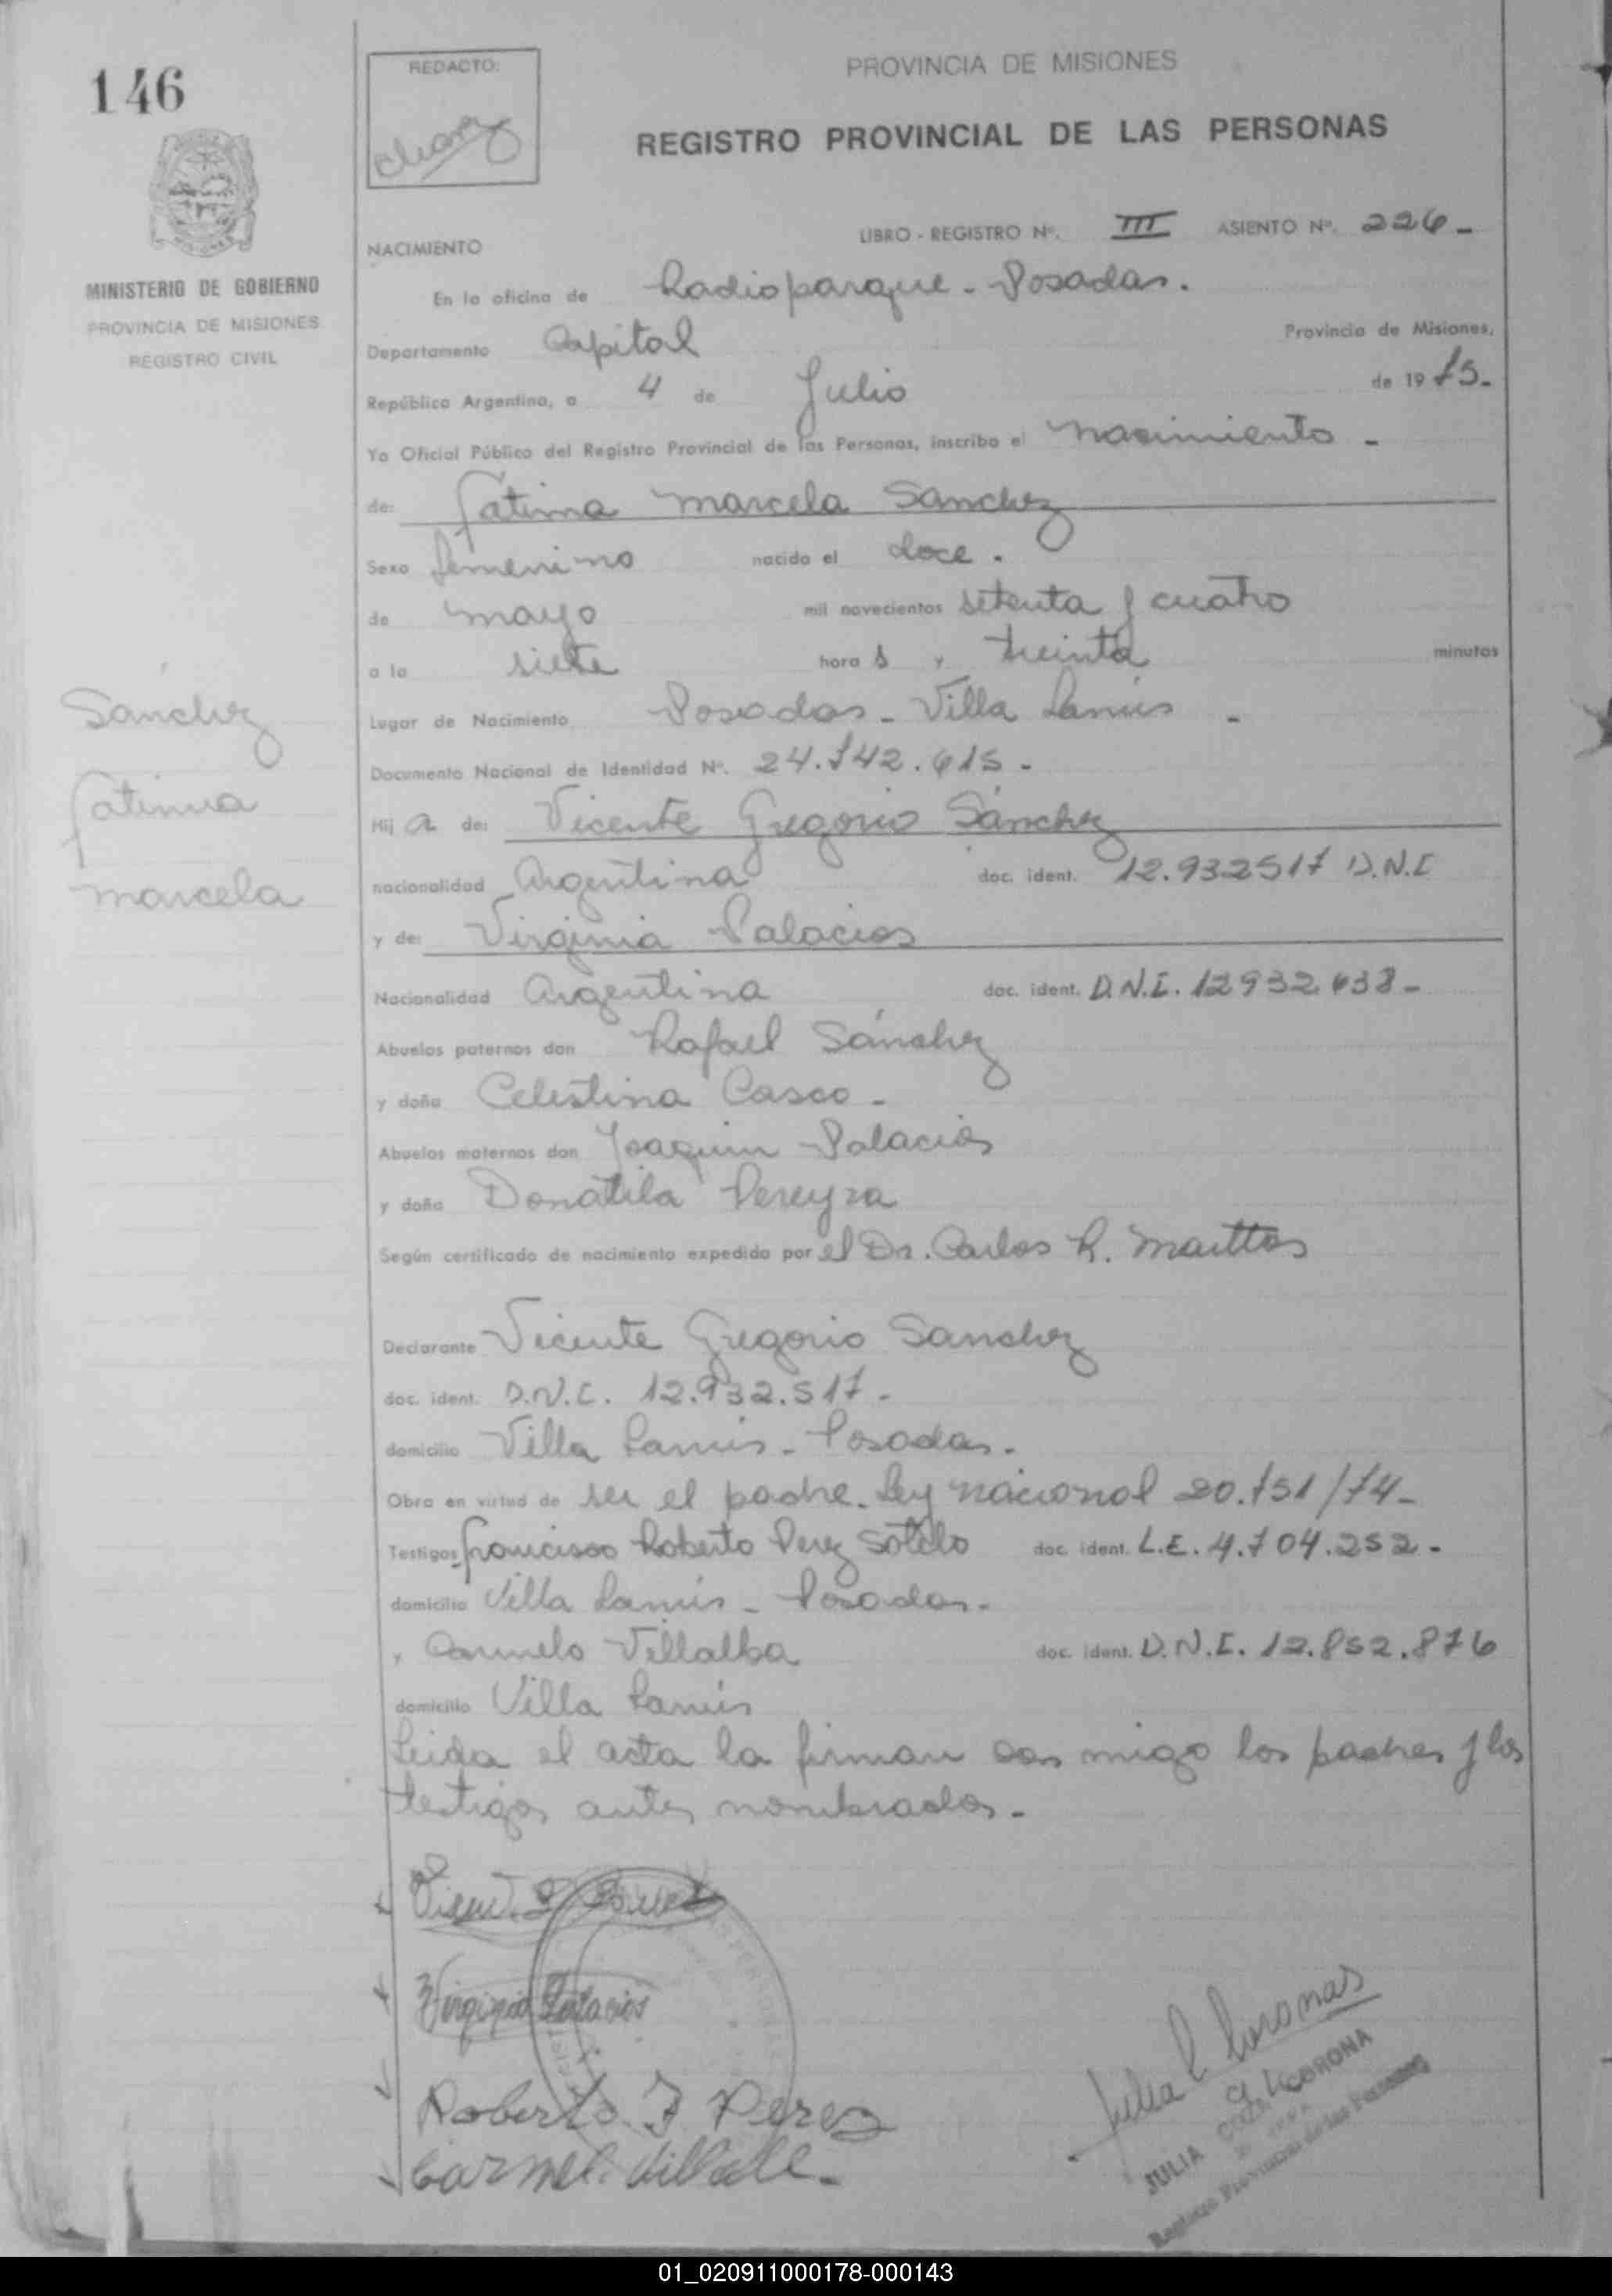 146
REDACTO:
PROVINCIA DE MISIONES
REGISTRO PROVINCIAL DE LAS PERSONAS
MINISTERIO DE GOBIERNO
PROVINCIA DE MISIONES
REGISTRO CIVIL
LIBRO - REGISTRO Nº. III ASIENTO Nº. 226 -
NACIMIENTO
En la oficina de Radioparque - Posadas.
Departamento Capital Provincia de Misiones,
República Argentina, a 4 de Julio de 1975-
Yo Oficial Público del Registro Provincial de las Personas, inscribo el nacimiento -
de: Fatima Marcela Sanchez
Sexo femenino nacido el doce.
de mayo mil novecientos setenta y cuatro
a la siete hora s y treinta minutos
Lugar de Nacimiento Posadas - Villa Lanús -
Sánchez
Fatima
Marcela
Documento Nacional de Identidad Nº. 24.742.615 -
Hij a de: Vicente Gregorio Sánchez
nacionalidad Argentina doc. ident. 12.932517 D.N.I
y de: Virginia Palacios
Nacionalidad Argentina doc. ident. D.N.I. 12932.638-
Abuelos paternos don Rafael Sánchez
y doña Celestina Casco -
Abuelos maternos don Joaquin Palacios
y doña Donatila Pereyra
Según certificado de nacimiento expedido por el Dr. Carlos R.
Declarante Vicente Gregorio Sanchez
doc. ident. D.N.I. 12.932.517 -
domicilio Villa Lanús - Posadas.
Obra en virtud de ser el padre. Ley nacional 20.751/74-
Testigos Francisco Roberto Perez Sotelo doc. ident. L.E. 4.704.252 -
domicilio Villa Lanús - Posadas -
y Carmelo Villalba doc. ident. D.N.I. 12.852.876
domicilio Villa Lanús
Leida el acta la firman con migo los padres y los
testigos antes nombrados -
Virginia Palacios
Roberto F Perez
JULIA CORONA
Registro Provincial de las Personas
01_020911000178-000143